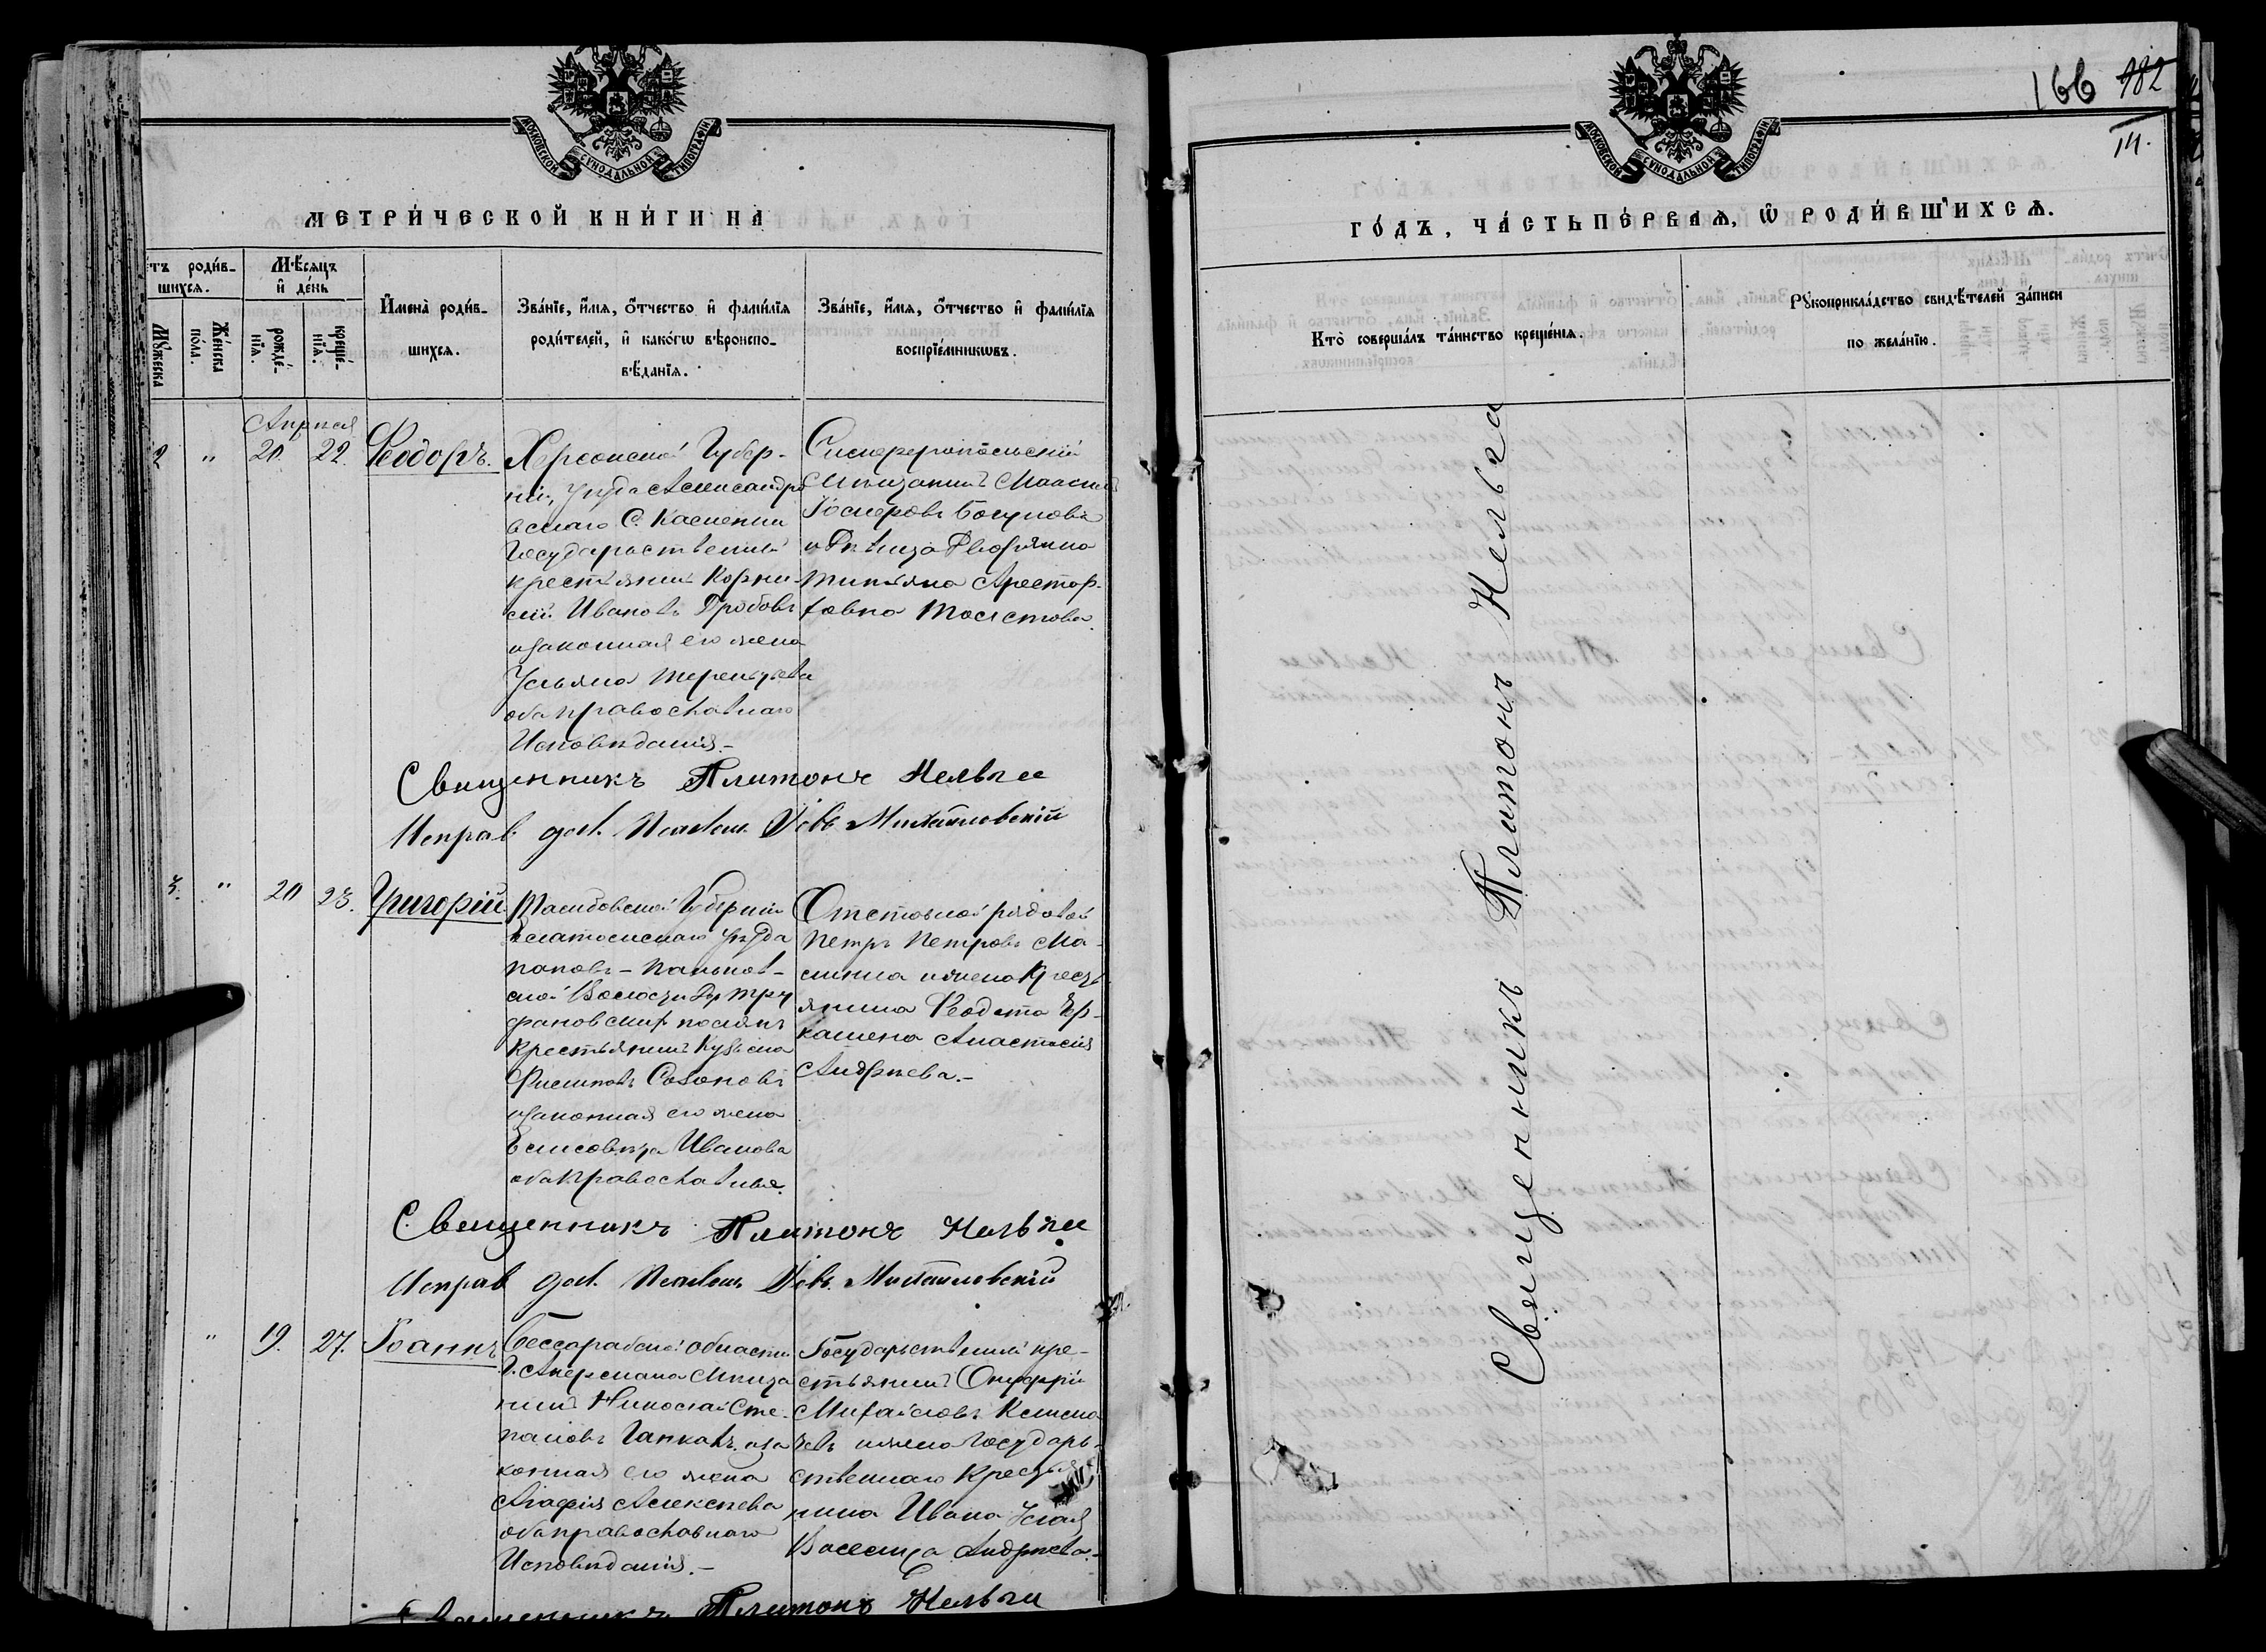 МОСКОВСКОЙ СѴНОДАЛЬНОЙ ТИПОГРАФІИ
МЕТРИ́ЧЕСКОЙ КНИ́ГИ НА
тъ роди́в-
шихся.
Мꙋжеска
Же́нска
по́ла.
Мѣ́сяцъ
и҆ де́нь
рожде́-
нїѧ.
креще́-
нїѧ.
И҆мена̀ роди́в-
шихсѧ.
Зва́нїе, и҆́мѧ, ѻ҆́тчество и҆ фами́лїѧ
роди́телей, и҆ како́гѡ вѣроиспо-
вѣ́данїѧ.
Зва́нїе, и҆́мѧ, ѻ҆́тчество и҆ фами́лїѧ
воспрїе́мникѡвъ.
Апреля
2 " 20 22. Ѳеодоръ.
Херсонской Губер-
ніи, уѣзда Александро
вскаго С. Касненки
Государственный
крестьянинъ Корни-
лій Ивановъ Гробовъ
и законная его жена
Ульяна Терентьева
оба православнаго
Исповѣданія.-
Симферопольскій
Мѣщанинъ Максимъ
Іосифовъ Богуновъ
и дѣвица Дворянка
Татьяна Христоф-
оровна Толстова.
Священникъ Платонъ Нельга
Исправ. дол. Псалом. Іовъ Михайловскій
3. " 20 23. Григорій
Тамбовской Губерніи
Елатомскаго уѣзда
Папов-Паньков-
ской Волости
крестьянинъ Кузьма
Филиповъ Созоновъ
и законная его жена
Елисовета Иванова
оба православные.
Отставной рядовой
Петръ Петровъ Ма-
линка и жена Кресть
янина Ѳеодота Ер-
Анастасія
Андреева.-
Священникъ Платонъ Нельга
Исправ. дол. Псалом. Іовъ Михайловскій
" 19. 27. Іоаннъ
Бессарабской области
Г. Акермана Мѣща
нинъ Николай Сте-
пановъ Гапковъ и за
конная его жена
Агафія Алексеева
оба православнаго
Исповѣданія.-
Государственный кре-
стьянинъ Онуфрій
Михайловъ Климе
и жена Государ-
ственнаго Крестья
нина Ивана
Василиса Андреева.-
Священникъ Платонъ Нельга
166 982
МОСКОВСКОЙ СѴНОДАЛЬНОЙ ТИПОГРАФІИ
ГО́ДЪ, ЧА́СТЬ ПЕ́РВАѦ, Ѡ҆ РОДИ́ВШИХСѦ.
Кто̀ соверша́лъ та́инство креще́нїѧ.
Рꙋкоприкла́дство свидѣ́телей за́писи
по жела́нїю.
Священникъ Платонъ Нельга